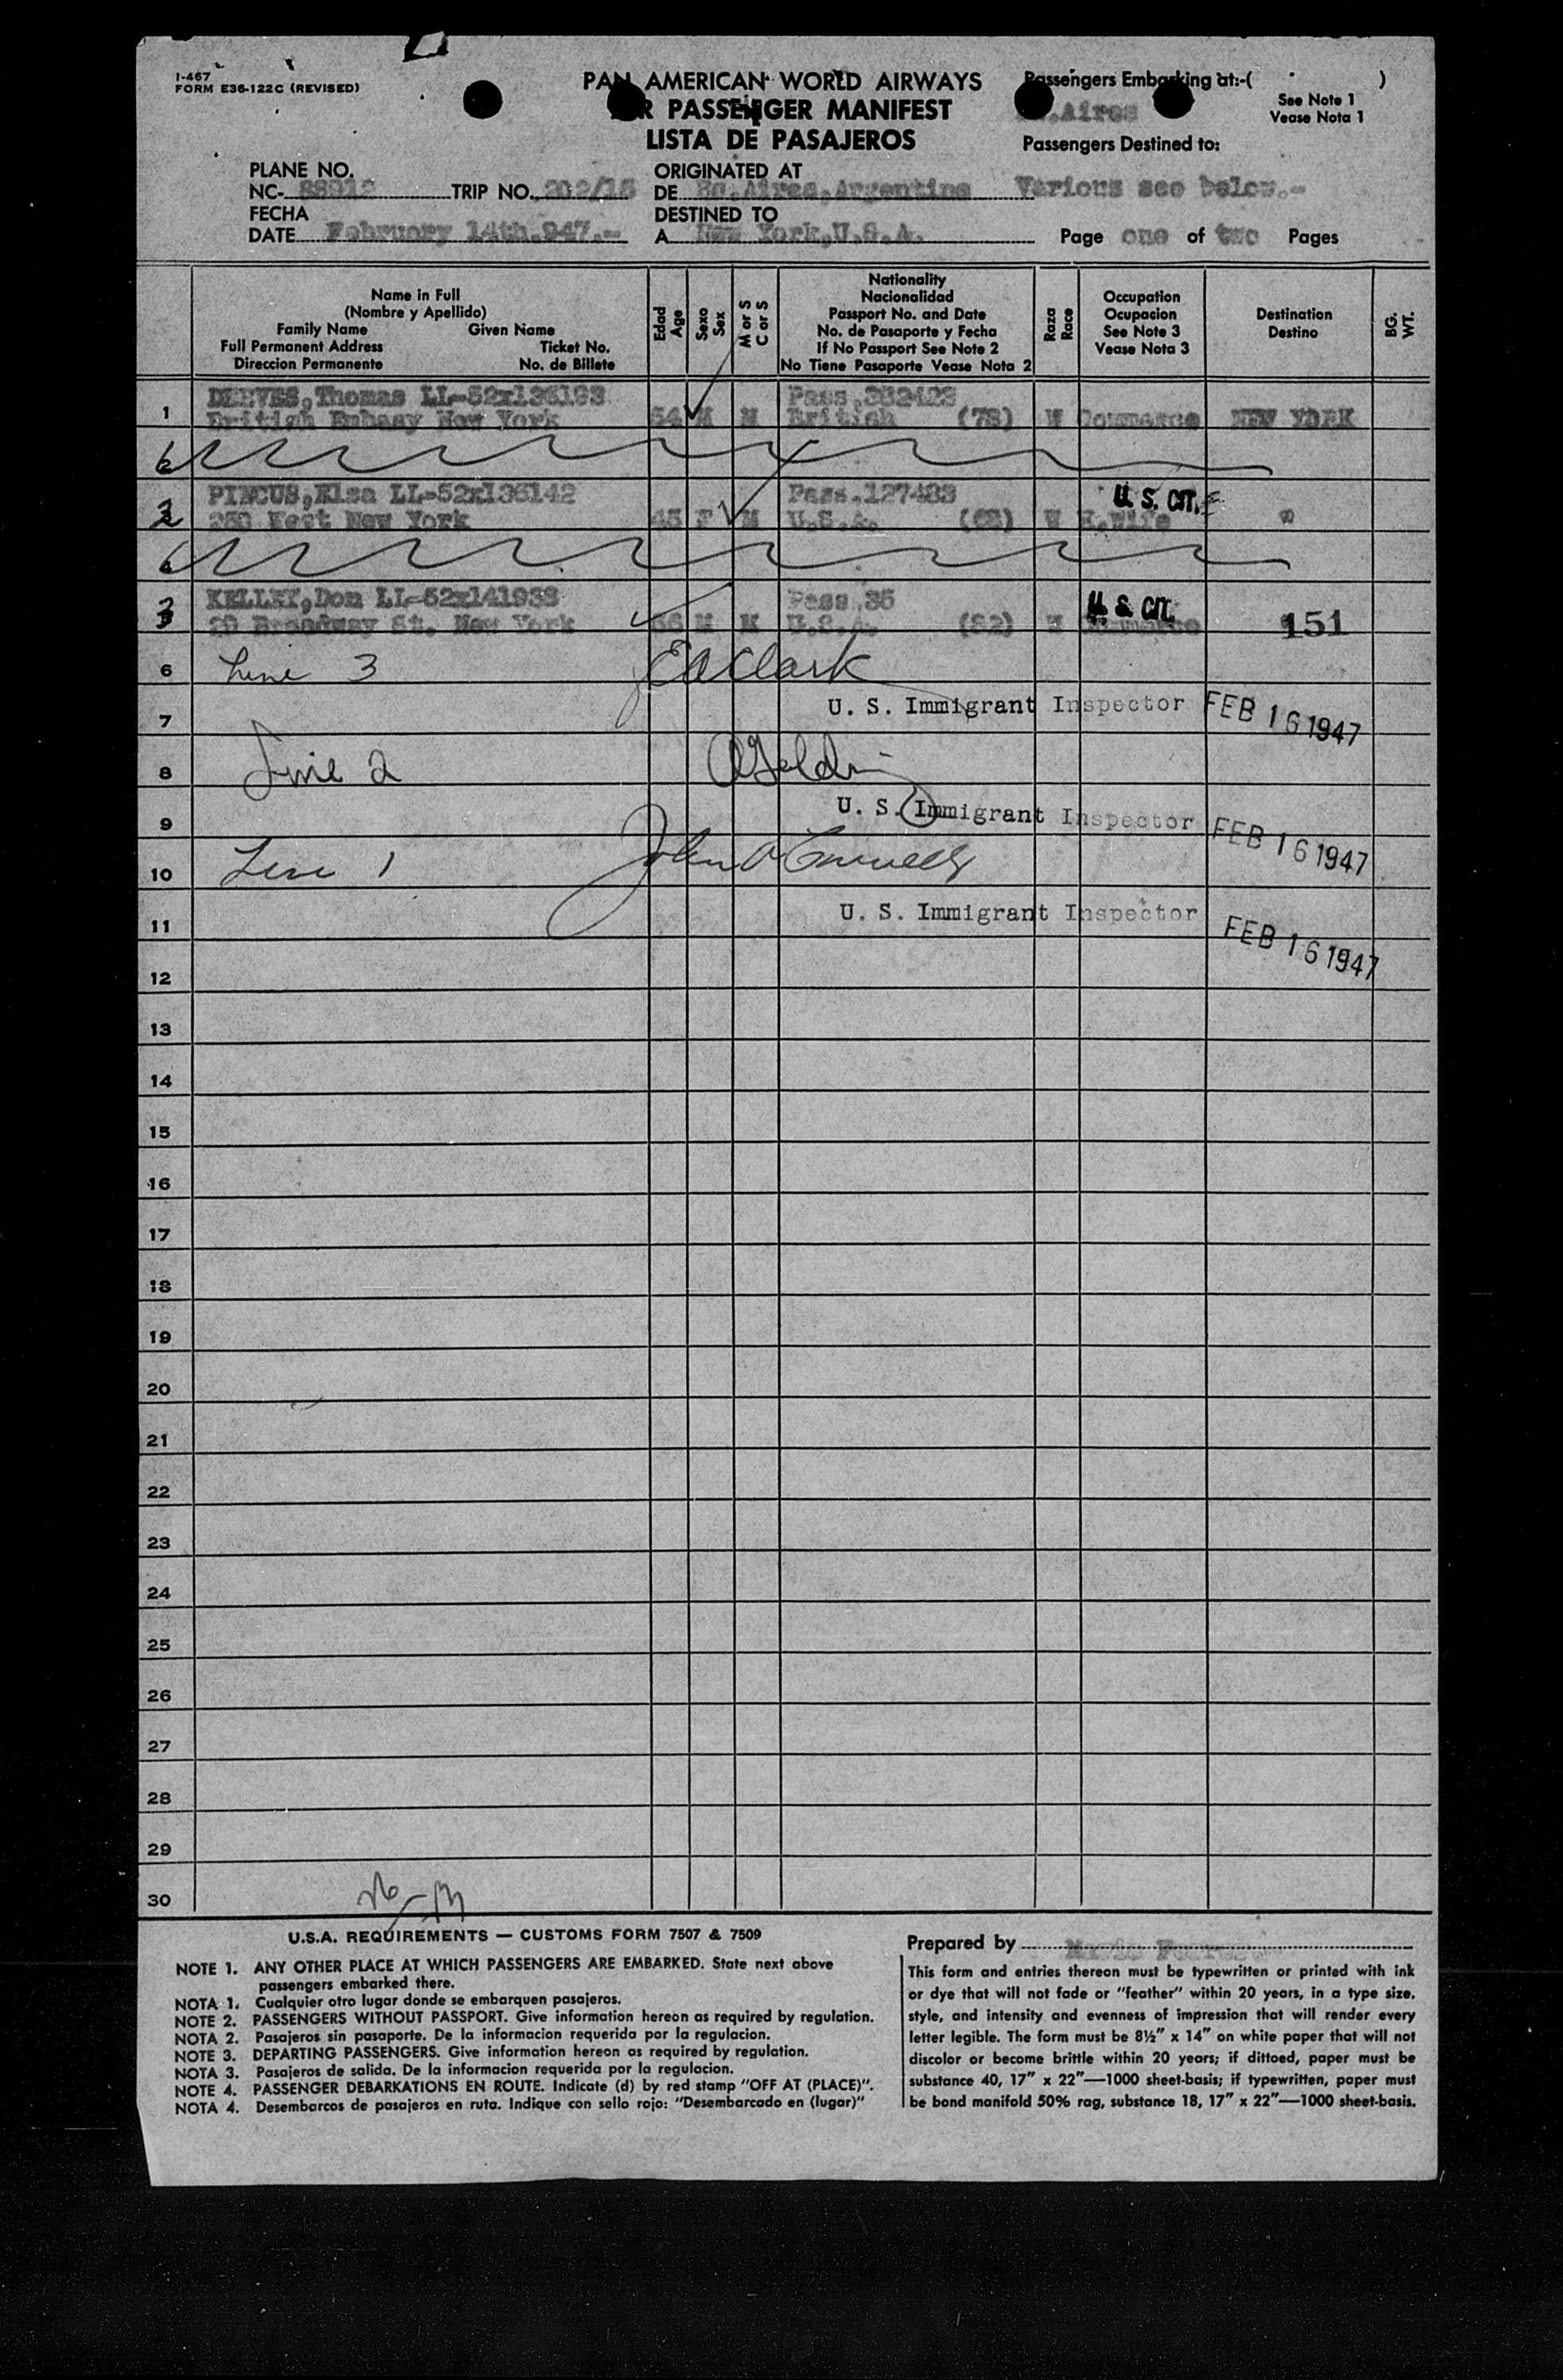 I-467
FORM E36-122C (REVISED)
PAN AMERICAN WORLD AIRWAYS
PASSENGER MANIFEST
LISTA DE PASAJEROS
Passengers Embarking at:-( )
See Note 1
Vease Nota 1
.Aires
Passengers Destined to:
Various see below.-
PLANE NO.
NC- TRIP NO.
ORIGINATED AT
DE Bs.Aires,Argentina
FECHA
DATE February 14th.947.-
DESTINED TO
A New York,U.S.A.
Page one of two Pages
Name in Full
(Nombre y Apellido)
Family Name Given Name
Full Permanent Address Ticket No.
Direccion Permanente No. de Billete
Edad
Age
Sexo
Sex
M or S
C or S
Nationality
Nacionalidad
Passport No. and Date
No. de Pasaporte y Fecha
If No Passport See Note 2
No Tiene Pasaporte Vease Nota 2
Raza
Race
Occupation
Ocupacion
See Note 3
Vease Nota 3
Destination
Destino
BG.
WT.
Thomas LL-52x136193 Pass.
1 British Embasy New York M M British (78) W Commerce NEW YORK
PINCUS,Elsa LL-52x136142 Pass.127483 U.S. CIT.
2 West New York F M U.S.A. W H.Wife
KELLEY,Don LL-52x141938 Pass.35 U.S. CIT.
3 Broadway St. New York M M U.S.A. (82) W Commerce 151
6 Line 3 Clark
U. S. Immigrant Inspector FEB 16 1947
7
8 Line 2
U. S. Immigrant Inspector FEB 16 1947
9
10 Line 1 John
U. S. Immigrant Inspector FEB 16 1947
11
12
13
14
15
16
17
18
19
20
21
22
23
24
25
26
27
28
29
30
U.S.A. REQUIREMENTS — CUSTOMS FORM 7507 & 7509
NOTE 1. ANY OTHER PLACE AT WHICH PASSENGERS ARE EMBARKED. State next above
passengers embarked there.
NOTA 1. Cualquier otro lugar donde se embarquen pasajeros.
NOTE 2. PASSENGERS WITHOUT PASSPORT. Give information hereon as required by regulation.
NOTA 2. Pasajeros sin pasaporte. De la informacion requerida por la regulacion.
NOTE 3. DEPARTING PASSENGERS. Give information hereon as required by regulation.
NOTA 3. Pasajeros de salida. De la informacion requerida por la regulacion.
NOTE 4. PASSENGER DEBARKATIONS EN ROUTE. Indicate (d) by red stamp "OFF AT (PLACE)".
NOTA 4. Desembarcos de pasajeros en ruta. Indique con sello rojo: "Desembarcado en (lugar)"
Prepared by
This form and entries thereon must be typewritten or printed with ink
or dye that will not fade or "feather" within 20 years, in a type size,
style, and intensity and evenness of impression that will render every
letter legible. The form must be 8½" x 14" on white paper that will not
discolor or become brittle within 20 years; if dittoed, paper must be
substance 40, 17" x 22"—1000 sheet-basis; if typewritten, paper must
be bond manifold 50% rag, substance 18, 17" x 22"—1000 sheet-basis.